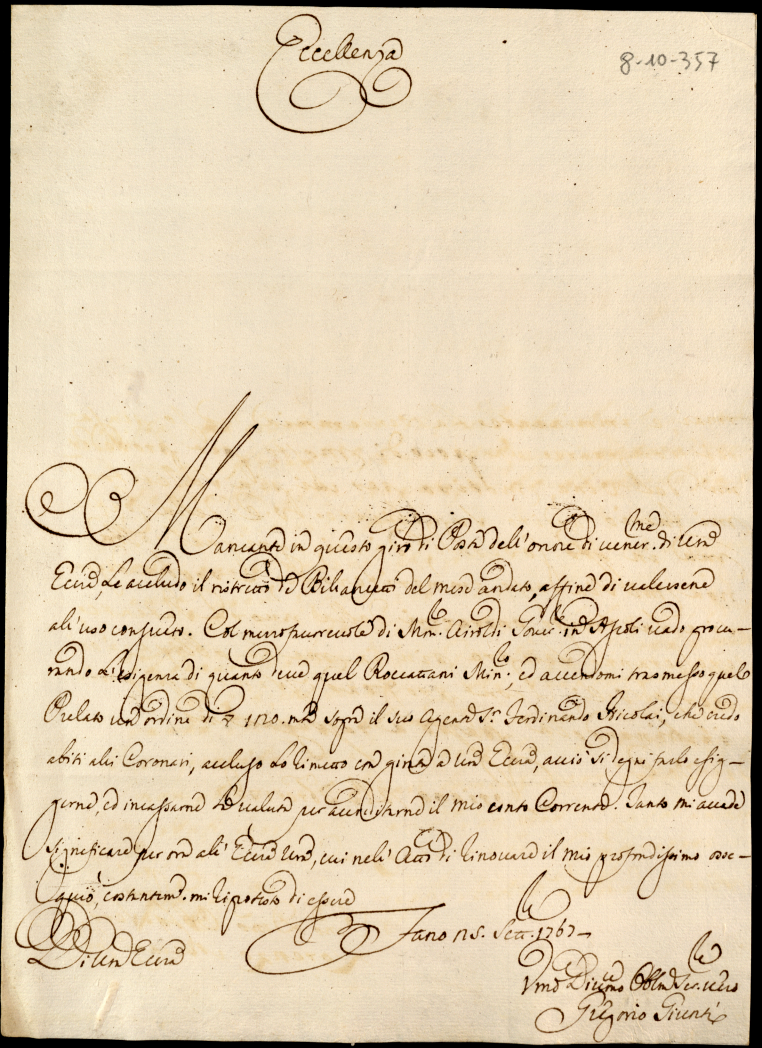 Eccellenza
8-10-357
Mancante in questo giro di Posta dell'onore di vener.me di Vra
Ecca, Le accludo il ristretto de Bilancetti del mese andato, affine di valersene
all'uso consueto. Col mezzo di Mn.r Airoldi Gover.re in Ascoli vado procu-
rando L'esigenza di quanto deve quel Roccattani Min.ro, ed avendomi trasmesso quel
Prelato un'ordine di 1020. mta sopra il suo Agente Sr. Ferdinando Nicolai, che credo
abiti alli Coronari, accluso Lo rimetto con gira a Vra Ecca, acciò si degni farlo esig-
gerne, ed incassarne la valuta per accreditarne il mio conto Corrente. Tanto mi accade
significare per ora all'Ecca Vra, cui nell'Atto di rinovare il mio profondissimo osse-
quio, costantem.e mi riprotesto di essere
Di Vra Ecca
Fano 15. Sett.re 1767
Vmo Divmo Obblmo Ser.re vero
Gregorio Giunti